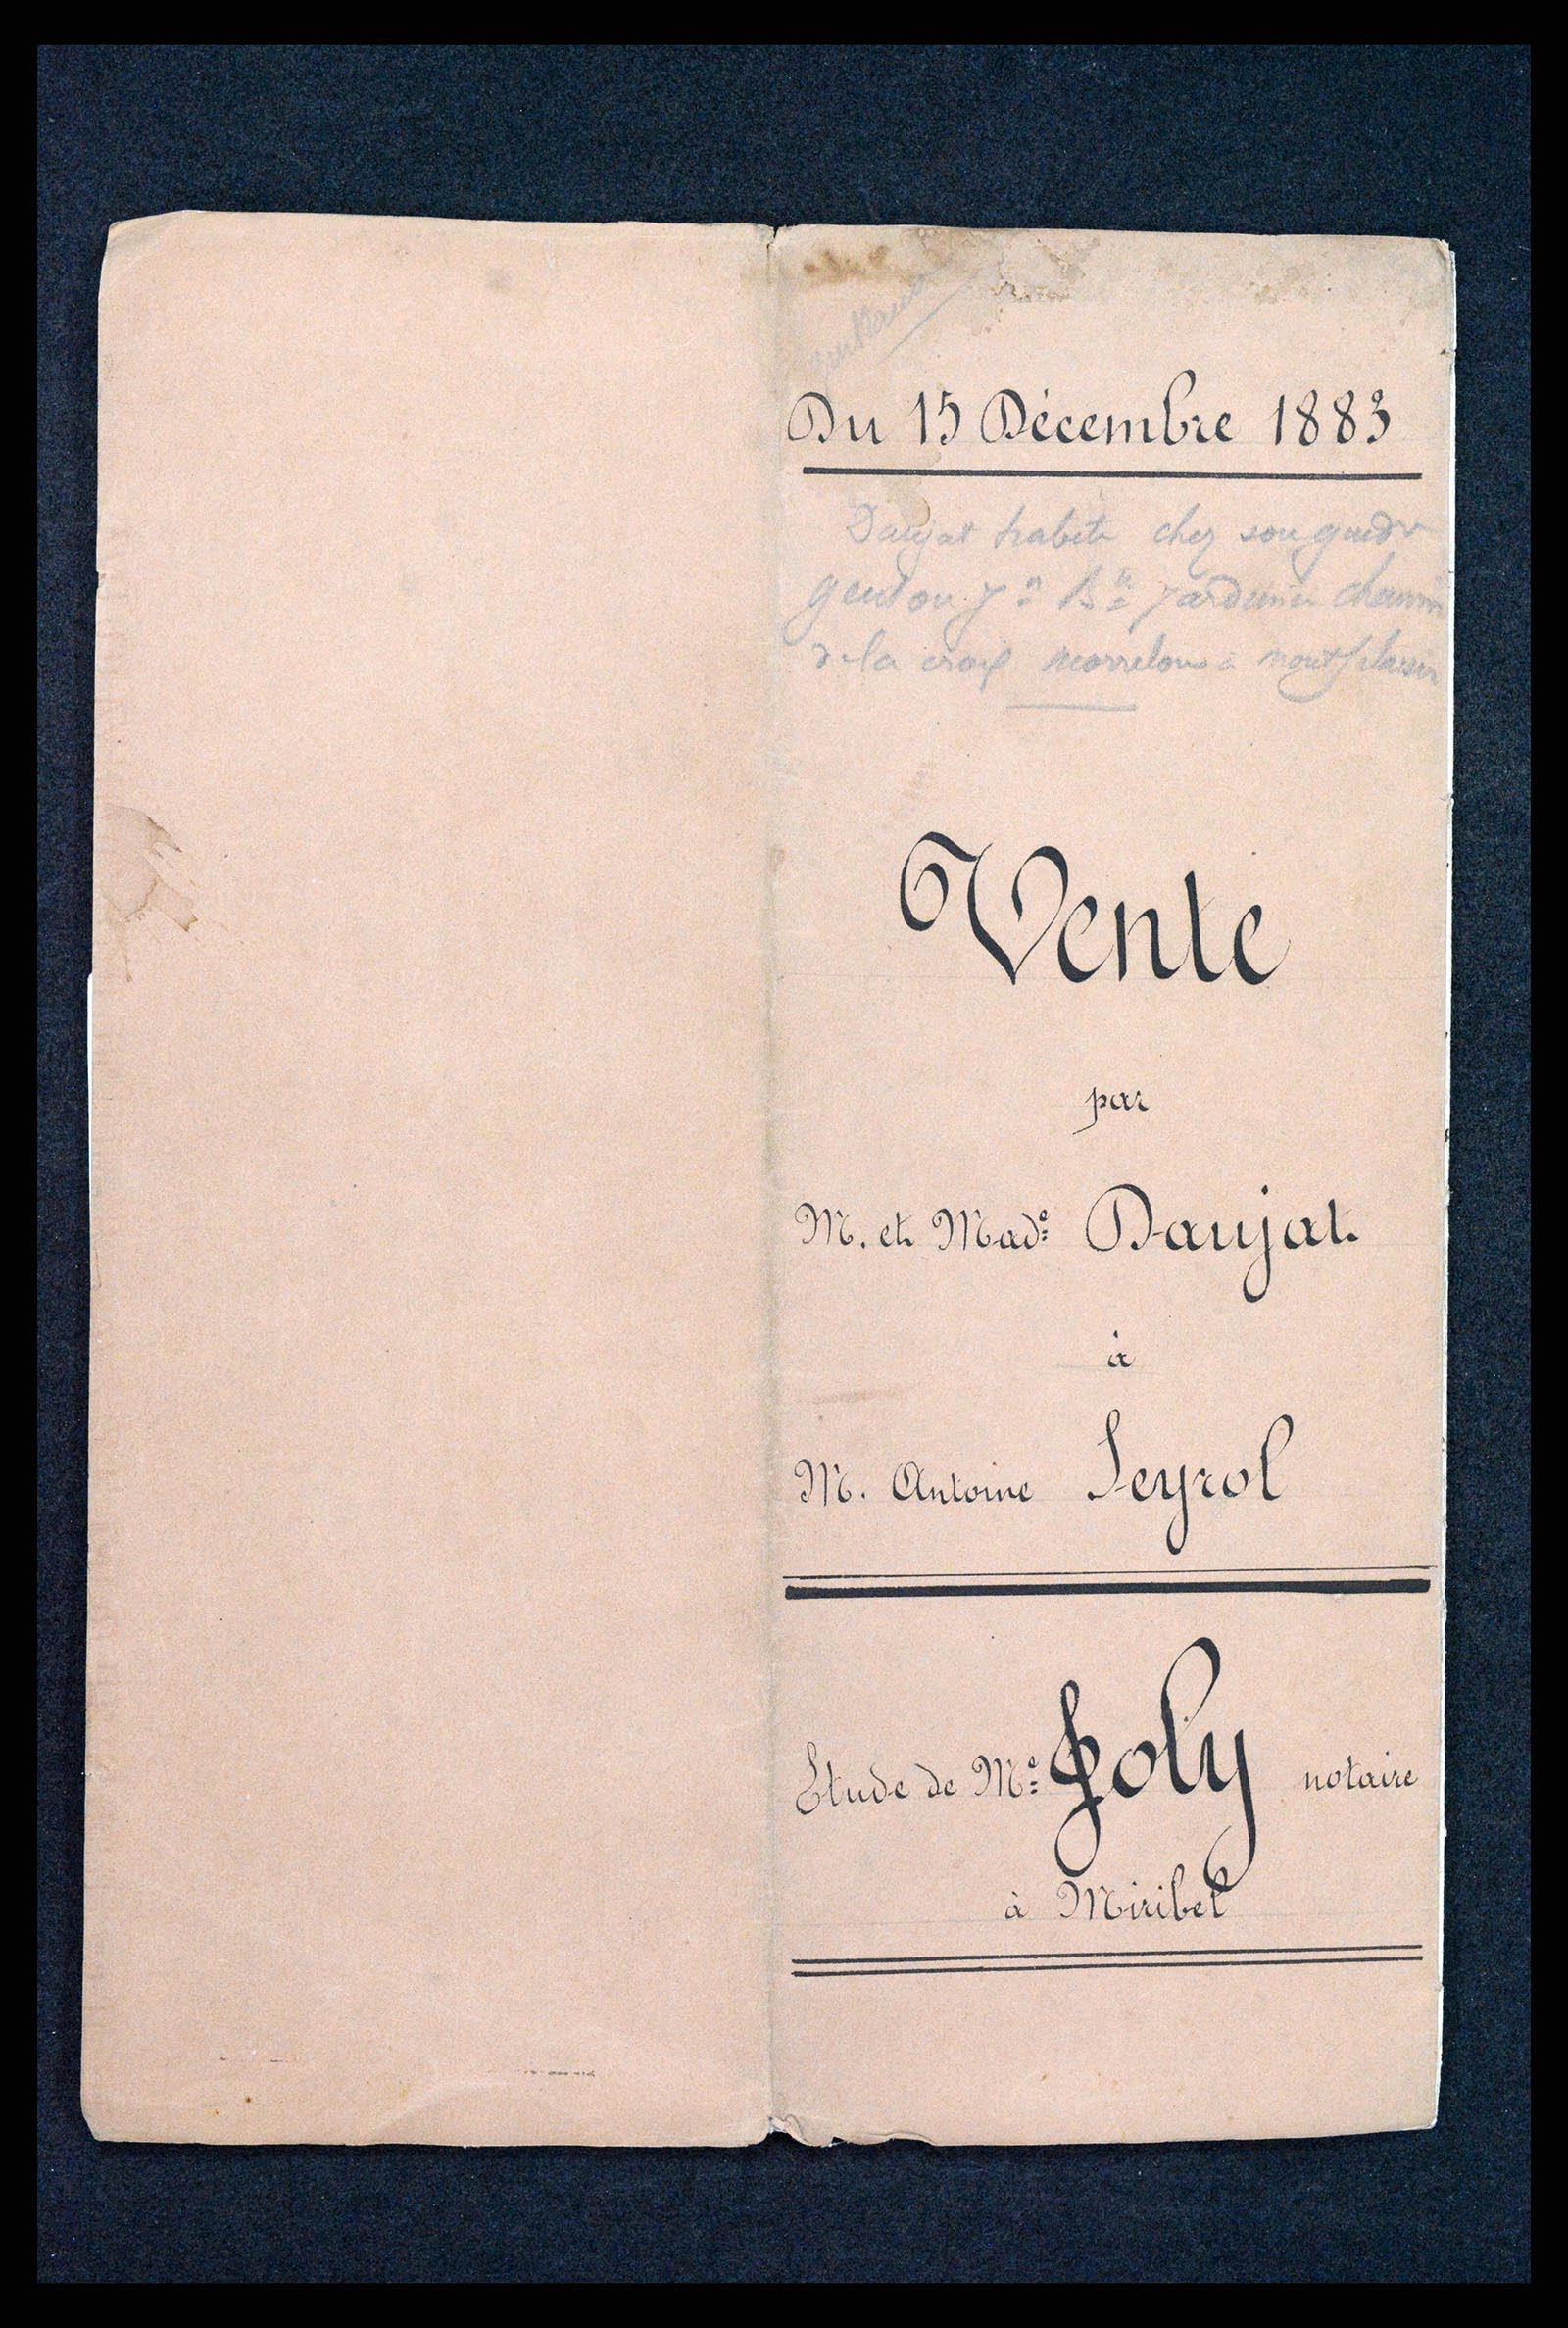 Du 15 Décembre 1883
Daujat habite chez son gendre
genton Jn Bte jardinier chemin
de la croix morrelon à montplaisir
Vente
par
M. et Made Daujat
à
M. Antoine Seyrol
Etude de Me Joly notaire
à Miribel